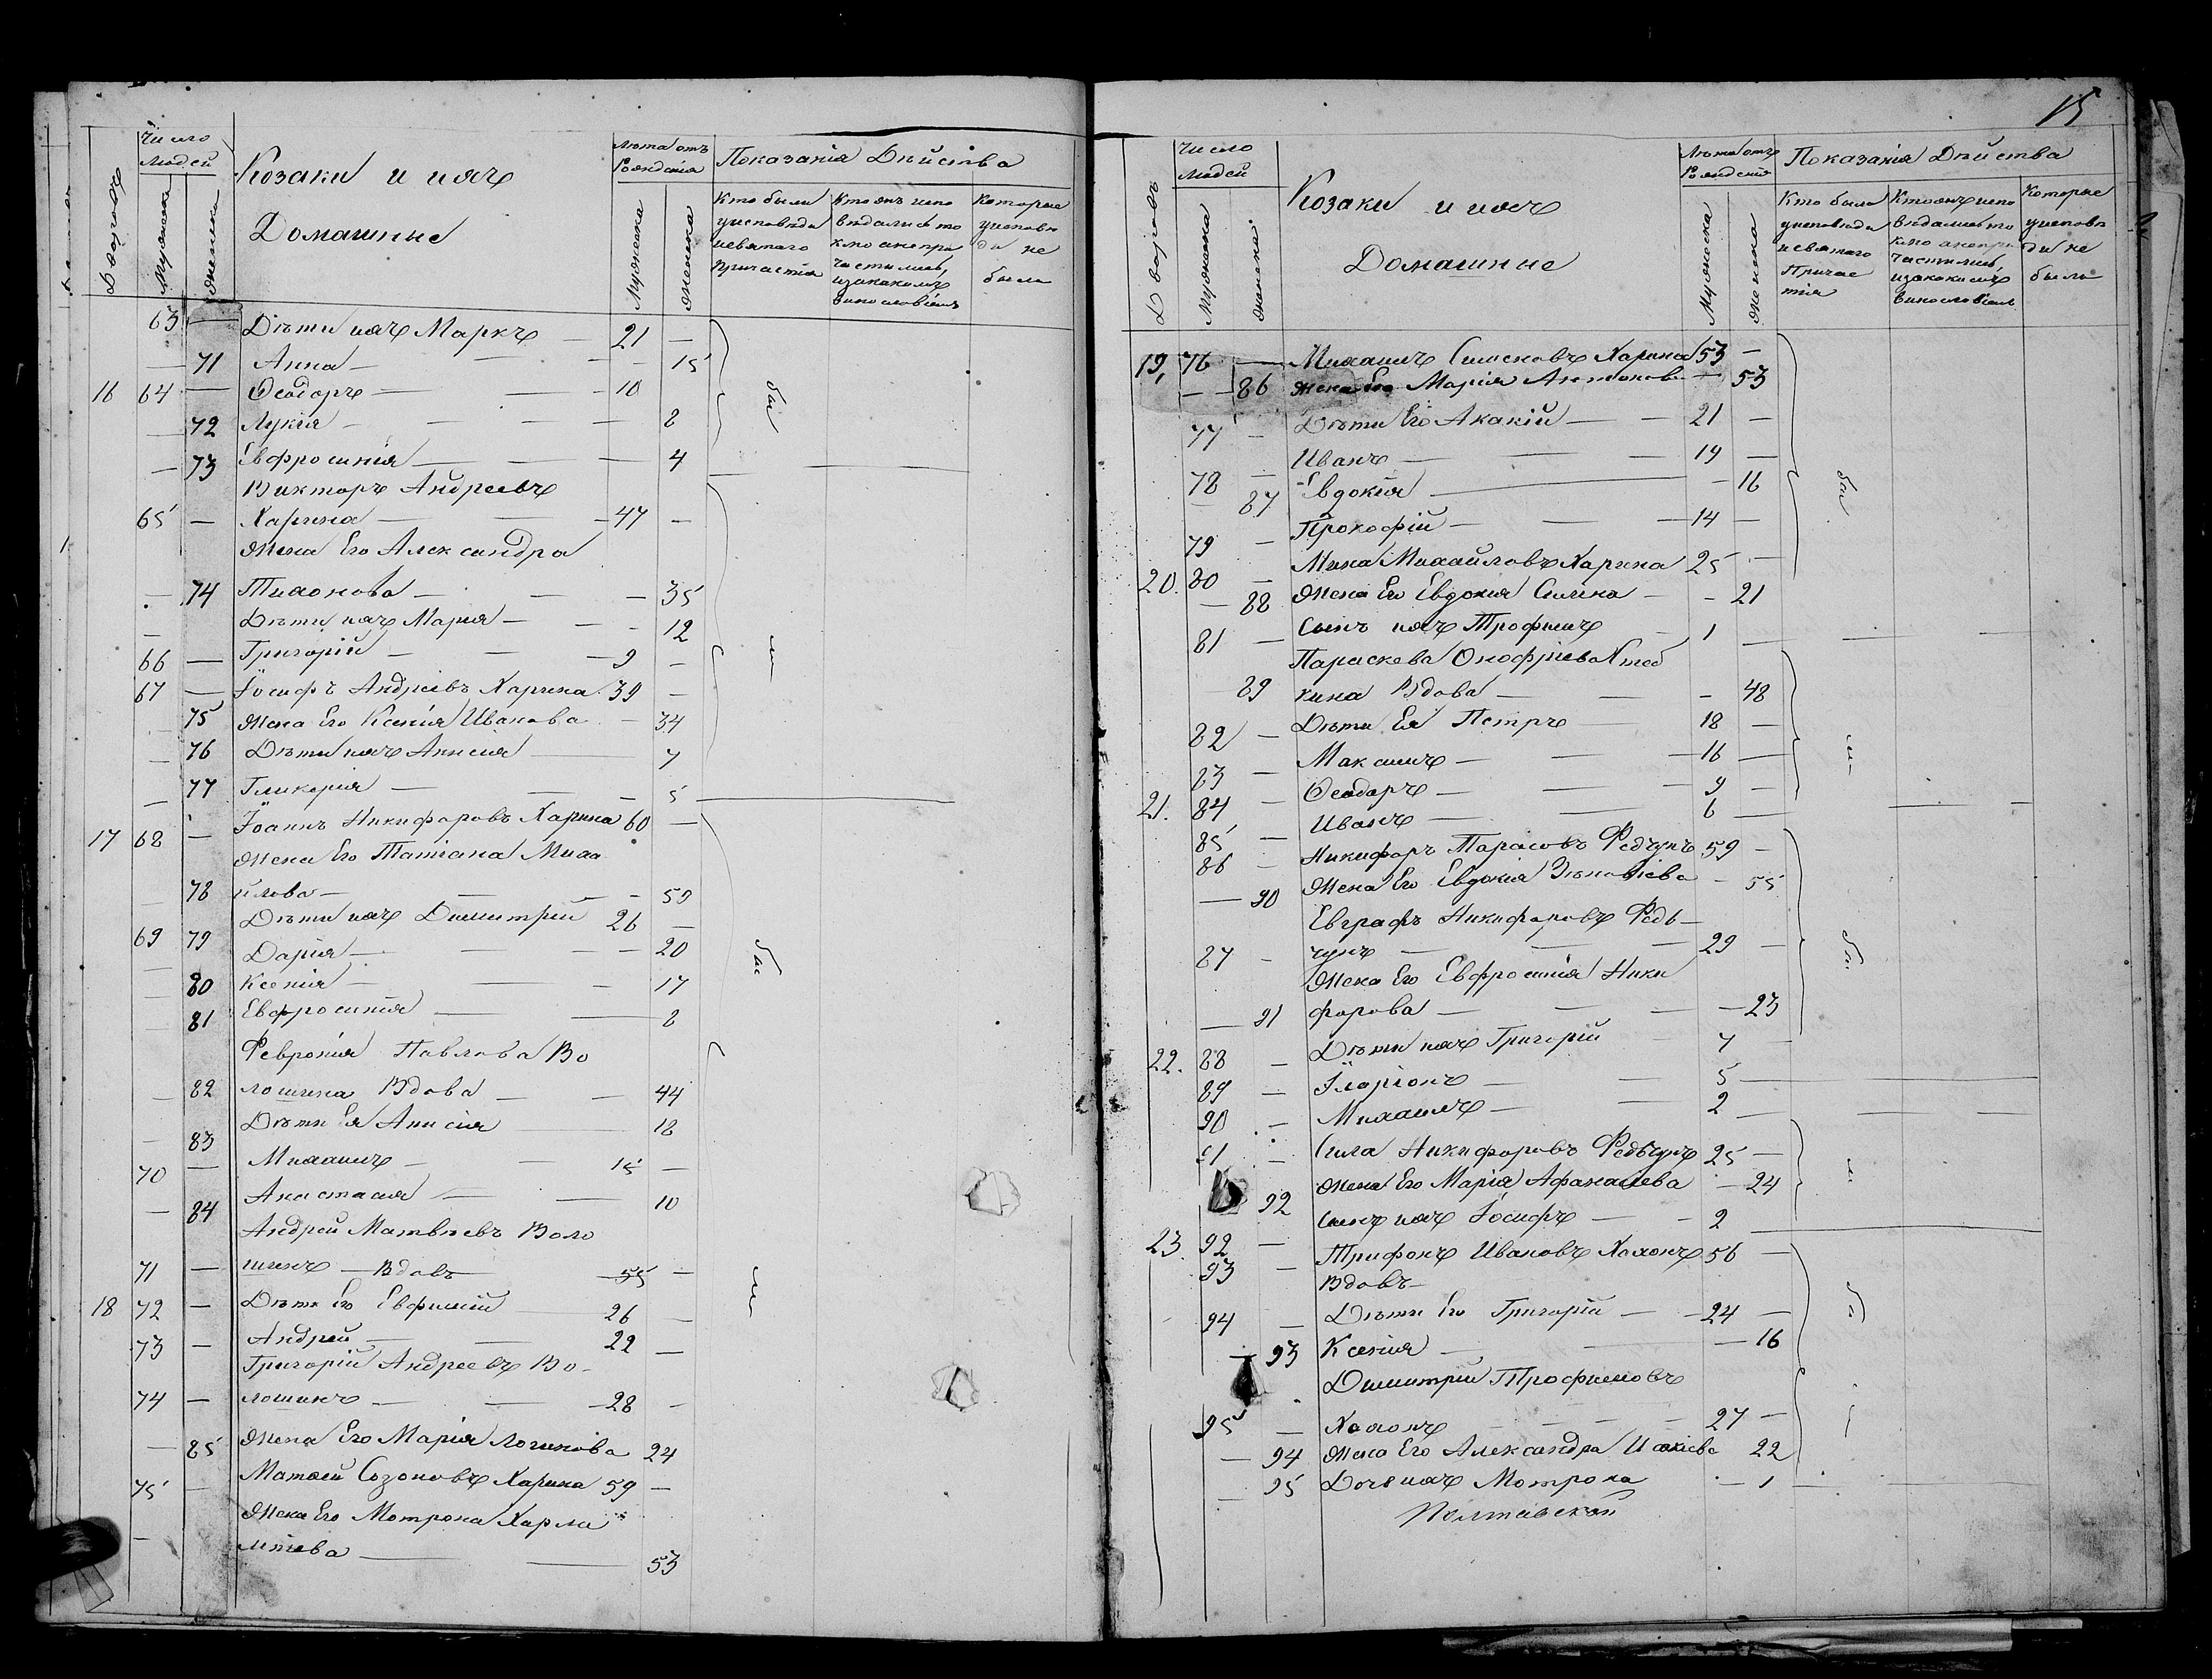 Дворовъ
Число
Людей
Мужеска
Женска
Козаки и ихъ
Домашные
Лѣта отъ
Рождения
Мужеска
Женска
Показанія Дѣйства
Кто были
у исповѣди
и святаго
причастія
Кто жъ испо
вѣдались то
кмо а не при
частились,
и за какимъ
винословіемъ
Которые
у исповѣ
ди не
были
63 — Дѣти ихъ Маркъ — 21 —
— 71 Анна — — — 15
16 64 — Ѳеодоръ — — 10
— 72 Лукія — — — 8
— 73 Евфросинія — — — 4
Викторъ Андреевъ
65 — Харина — — 47 —
Жена Его Александра
— 74 Тихонова — — — 35
— Дѣти ихъ Мария — — — 12
66 — Григорій — — 9 —
67 — Іосифъ Андріевъ Харина 39 —
75 Жена Его Ксенія Иванова — 34
— 76 Дѣти ихъ Анисия — 7
— 77 Гликерия — — — 5
17 68 — Іоаннъ Никифоровъ Харина 60 —
Жена Его Татіана Миха
— 78 йлова — — — 59
69 Дѣти ихъ Димитрій 26 —
79 Дарія — — — 20
— 80 Ксенія — — — 17
— 81 Евфросинія — — 8
Февронія Павлова Во
— 82 лошина Вдова — — 44
— 83 Дѣти Ея Анисия — 18
70 — Михаилъ — — 15 —
— 84 Анастасия — — 10
Андрей Матвѣевъ Воло
71 — шинъ — Вдовъ — 55 —
18 72 — Дѣти Его Евфимій 26 —
73 — Андрей — — 22 —
Григорій Андреевъ Во-
74 — лошинъ — — 28 —
— 85 Жена Его Марія Логинова 24
75 — Матѳей Созоновъ Харина 59 —
Жена Его Мотрона Харла
— мпіева — — 53
15
Дворовъ
Число
Людей
Мужеска
Женска
Козаки и ихъ
Домашные
Лѣта отъ
Рождения
Мужеска
Женска
Показанія Дѣйства
Кто были
у исповѣди
и святаго
Причас
тія
Кто жъ испо
вѣдались то
кмо а не при
частились,
и за какимъ
винословіемъ
Которые
у исповѣ
ди не
были
19, 76 — Михаилъ Симоновъ Харина 53 —
— 86 Жена Его Марія Антонова — 53
77 — Дѣти Его Акакій — — 21 —
78 — Иванъ — — — 19 —
— 87 Евдокія — — 16
79 — Прокофій — — — 14 —
20. 80 — Мина Михайловъ Харина 25 —
— 88 Жена Его Евдокия Силина — — 21
81 — Сынъ ихъ Трофимъ — 1 —
Параскева Онофріева
— 89 кина Вдова — — — 48
82 — Дѣти Ея Петръ — 18 —
83 — Максимъ — — — 16 —
21. 84 — Ѳеодоръ — — — 9 —
85 — Иванъ — — 6 —
86 — Никифоръ Тарасовъ Федчунъ 59 —
— 90 Жена Его Евдокия Зѣновіева — 55
Евграфъ Никифоровъ Федь-
87 — чунъ — — — 29 —
Жена Его Евфросинія Ники
— 91 форова — — — 23
22. 88 — Дѣти ихъ Григорій — 7 —
89 — Іларіонъ — — 5 —
90 — Михаилъ — — 2 —
91 — Сила Никифоровъ Федьчунъ 25 —
92 Жена Его Марія Афанасиева — 24
23. 92 — Сынъ ихъ Іосифъ — — 2 —
93 — Трифонъ Ивановъ Хохонъ 56 —
Вдовъ —
94 — Дѣти Его Григорій — — 24 —
— 93 Ксенія — — — 16
Димитрій Трофимовъ
95 — Хохонъ — — — 27 —
— 94 Жена Его Александра 22
— 95 Дочь ихъ Мотрона — 1
Полтавской